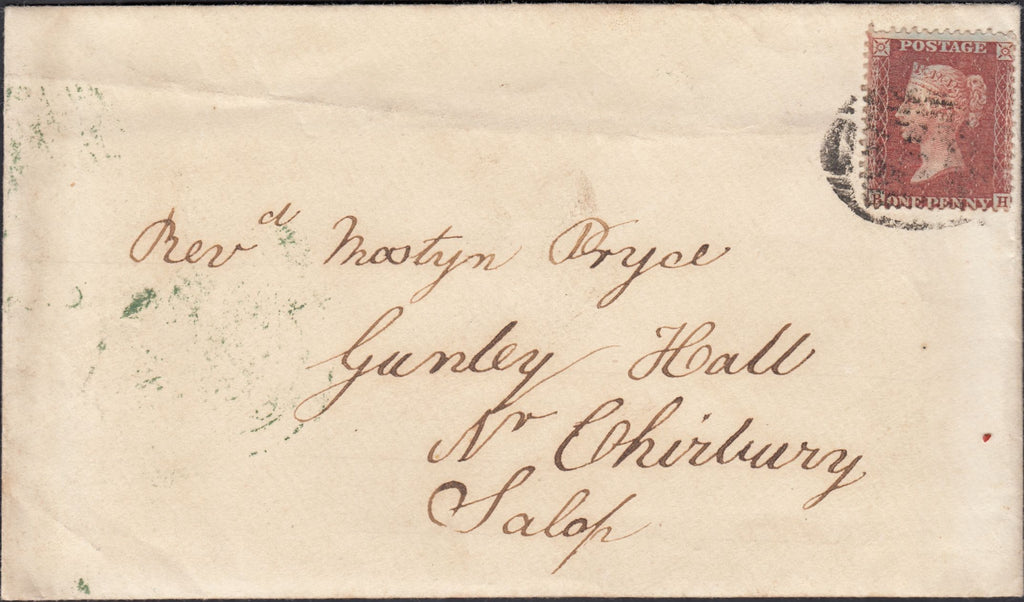 POSTAGE
ONE PENNY H
Revd Mostyn Pryce
Gunley Hall
Nr Chirbury
Salop